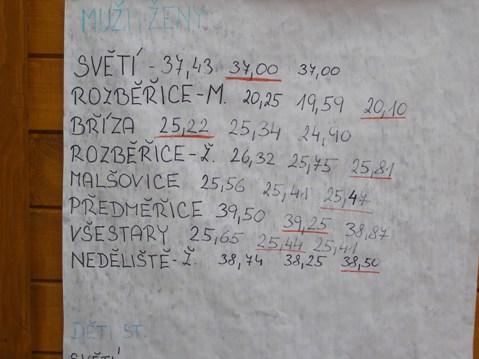 MUŽI ŽENY
SVĚTÍ - 37,43 37,00 37,00
ROZBĚŘICE-M. 20,25 19,59 20,10
BŘÍZA 25,22 25,34 24,90
ROZBĚŘICE-Ž. 26,32 25,75 25,81
MALŠOVICE 25,56 25,41 25,47
PŘEDMĚŘICE 39,50 39,25 38,87
VŠESTARY 25,65 25,44 25,41
NEDĚLIŠTĚ-Ž. 38,74 38,25 38,50
DĚTI ST.
SVĚTÍ